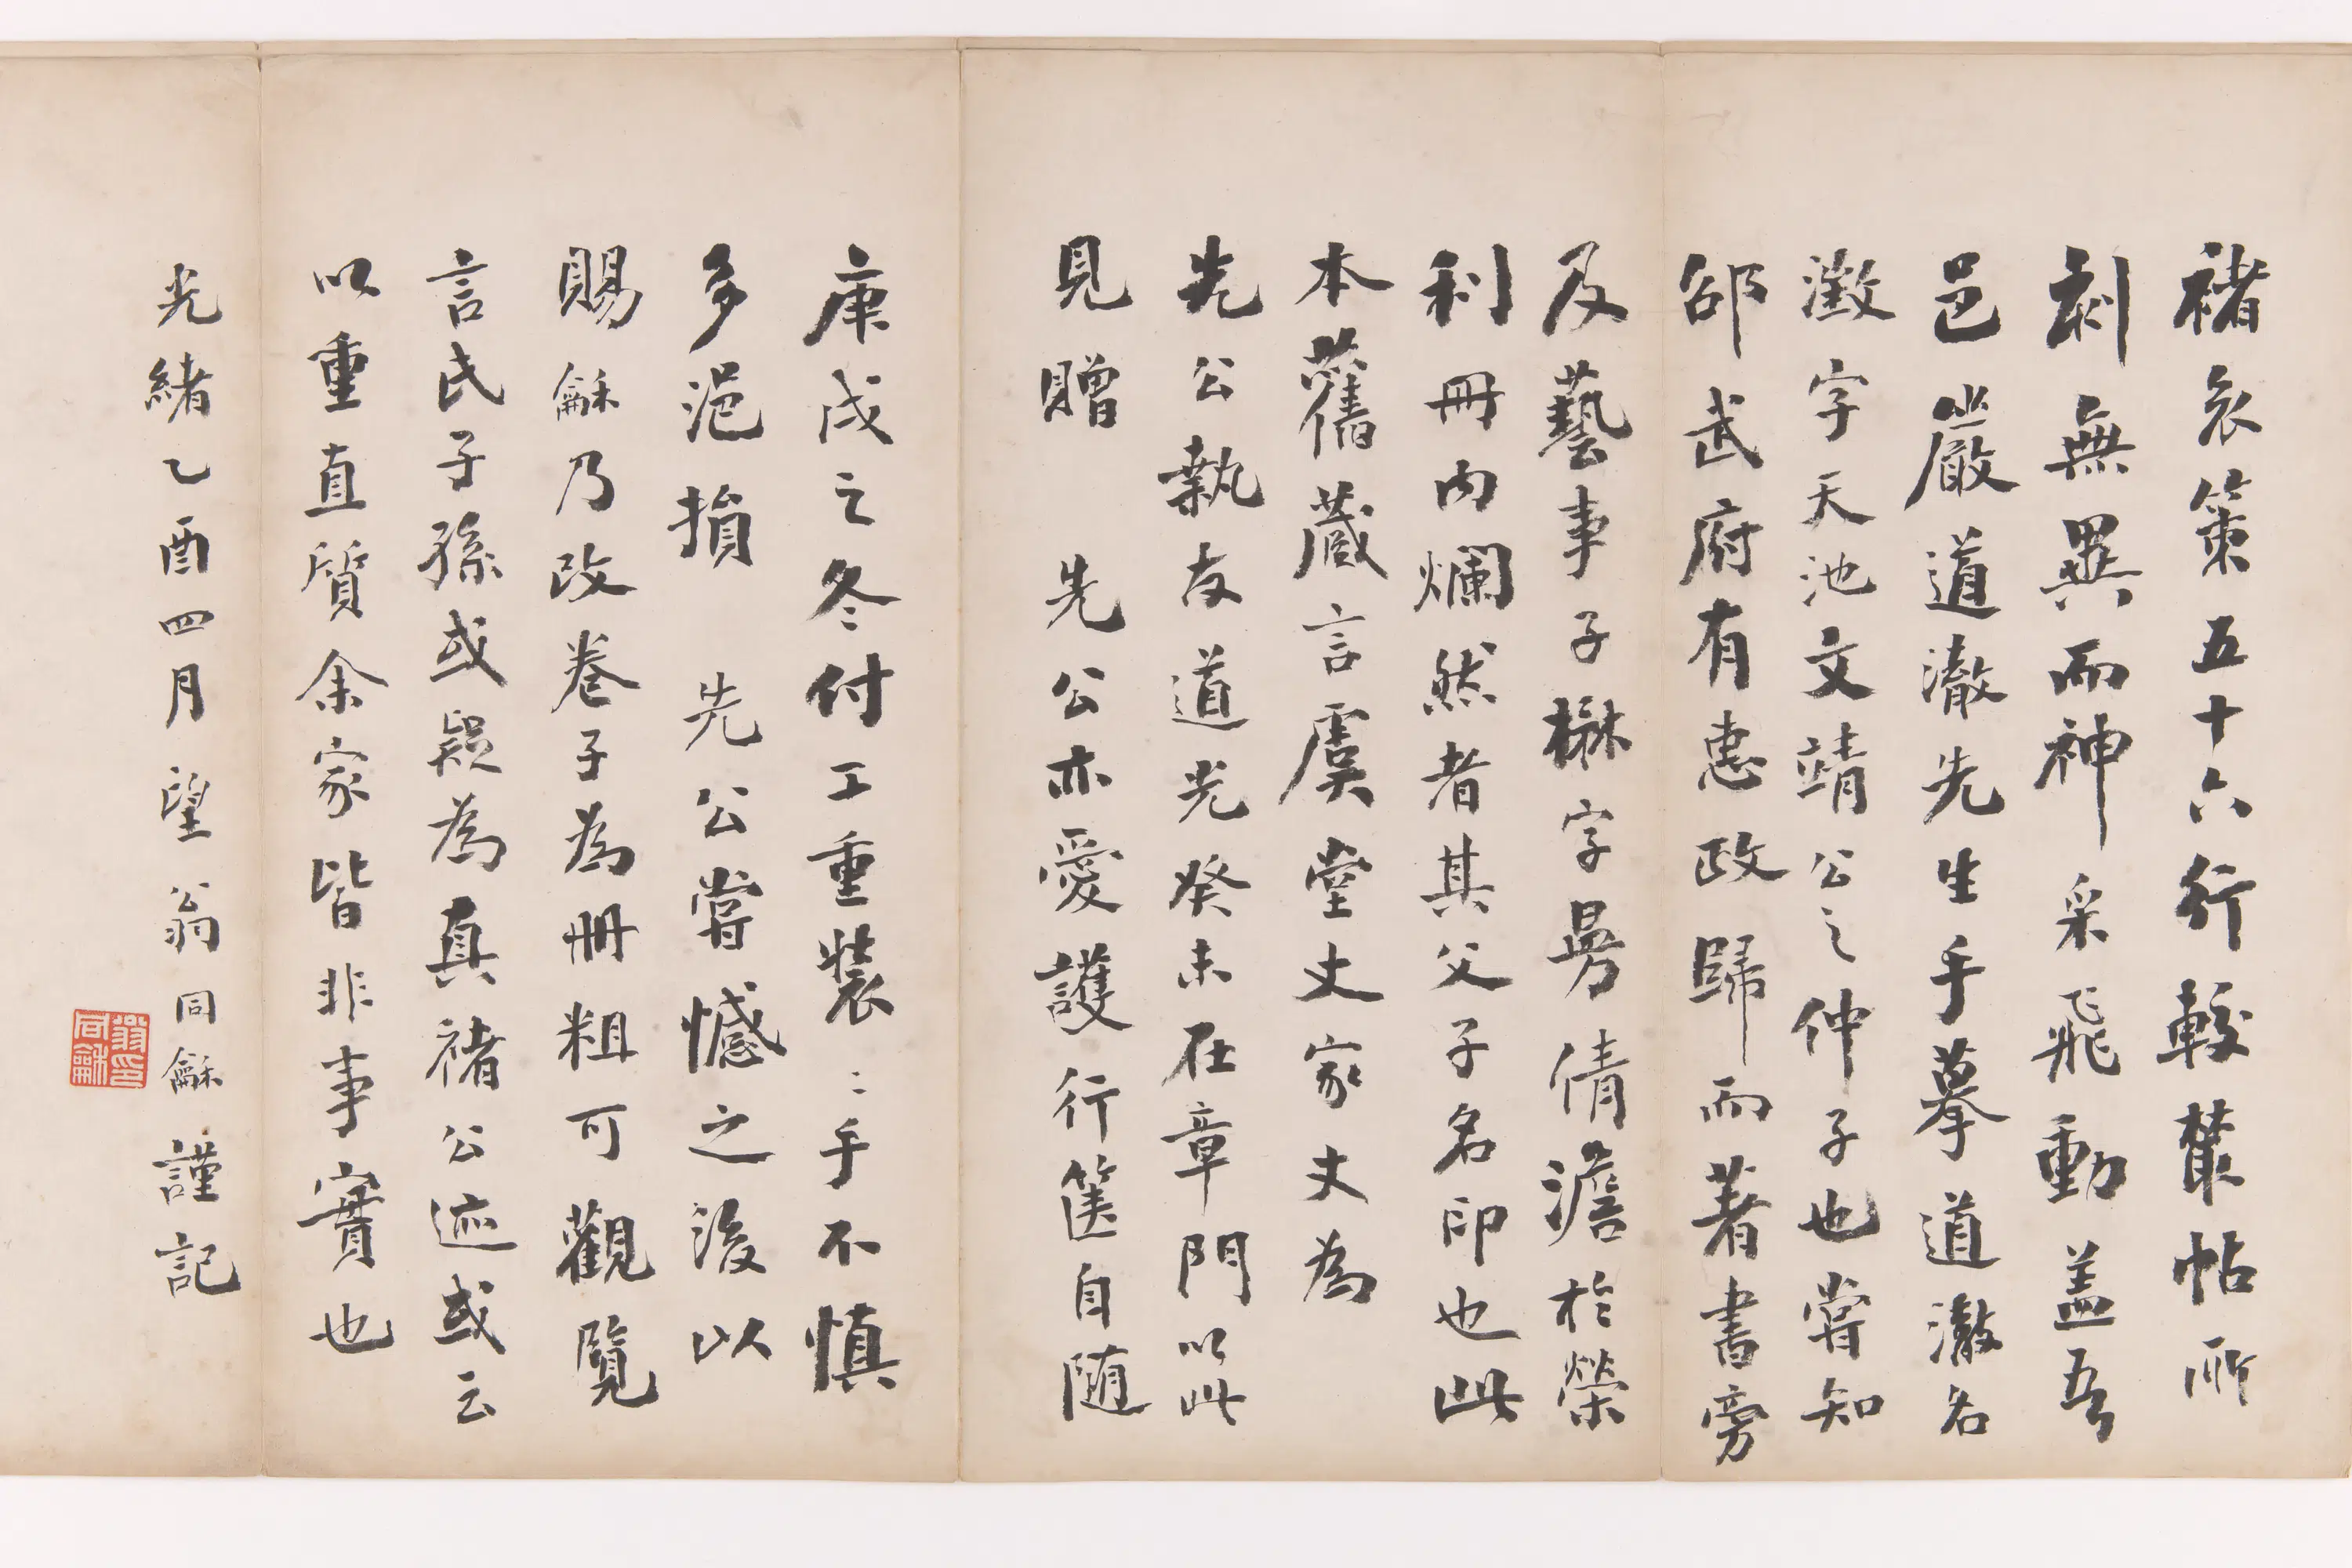 褚哀策五十六行較叢帖所
刻無異而神采飛動蓋吾
邑嚴道澈先生手摹道澈名
澂字天池文靖公之仲子也嘗知
邵武府有惠政歸而著書旁
及藝事子楙字昜倩澹於榮
利冊內爛然者其父子名印也此
本舊藏言虞堂丈家丈為
先公執友道光癸未在章門以此
見贈 先公亦愛護行篋自随
庚戌之冬付工重裝〻手不慎
多浥損 先公嘗憾之後以
賜龢乃改卷子為冊粗可觀覽
言氏子孫或疑為真褚公迹或云
以重直質余家皆非事實也
光緒乙酉四月望翁同龢謹記
翁印同龢